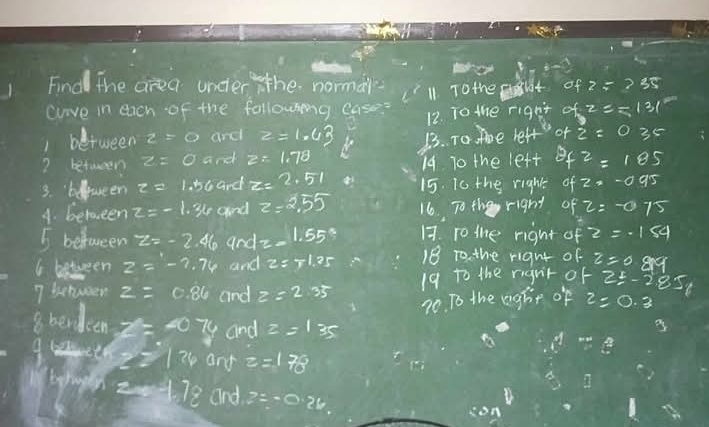 Find the area under the normal
curve in each of the following cases
1 between z = 0 and z = 1.63
2 between z = 0 and z = 1.78
3. between z = 1.56 and z = 2.51
4. between z = - 1.36 and z = 2.55
5 between z = - 2.46 and z = 1.55
6 between z = - 2.76 and z = -1.25
7 between z = 0.86 and z = 2.35
8 between z = -0.74 and z = 1.35
9 between z = 1.26 and z = 1.78
between z 1.78 and z = -0.26.
11 To the right of z = 2.35
12. To the right of z = -1.31
13. To the left of z = 0.35
14. To the left of z = 1.85
15. To the right of z = -0.95
16. To the right of z = -0.75
17. To the right of z = -1.54
18 To the right of z = 0.89
19 To the right of z = -2.85
20. To the right of z = 0.3